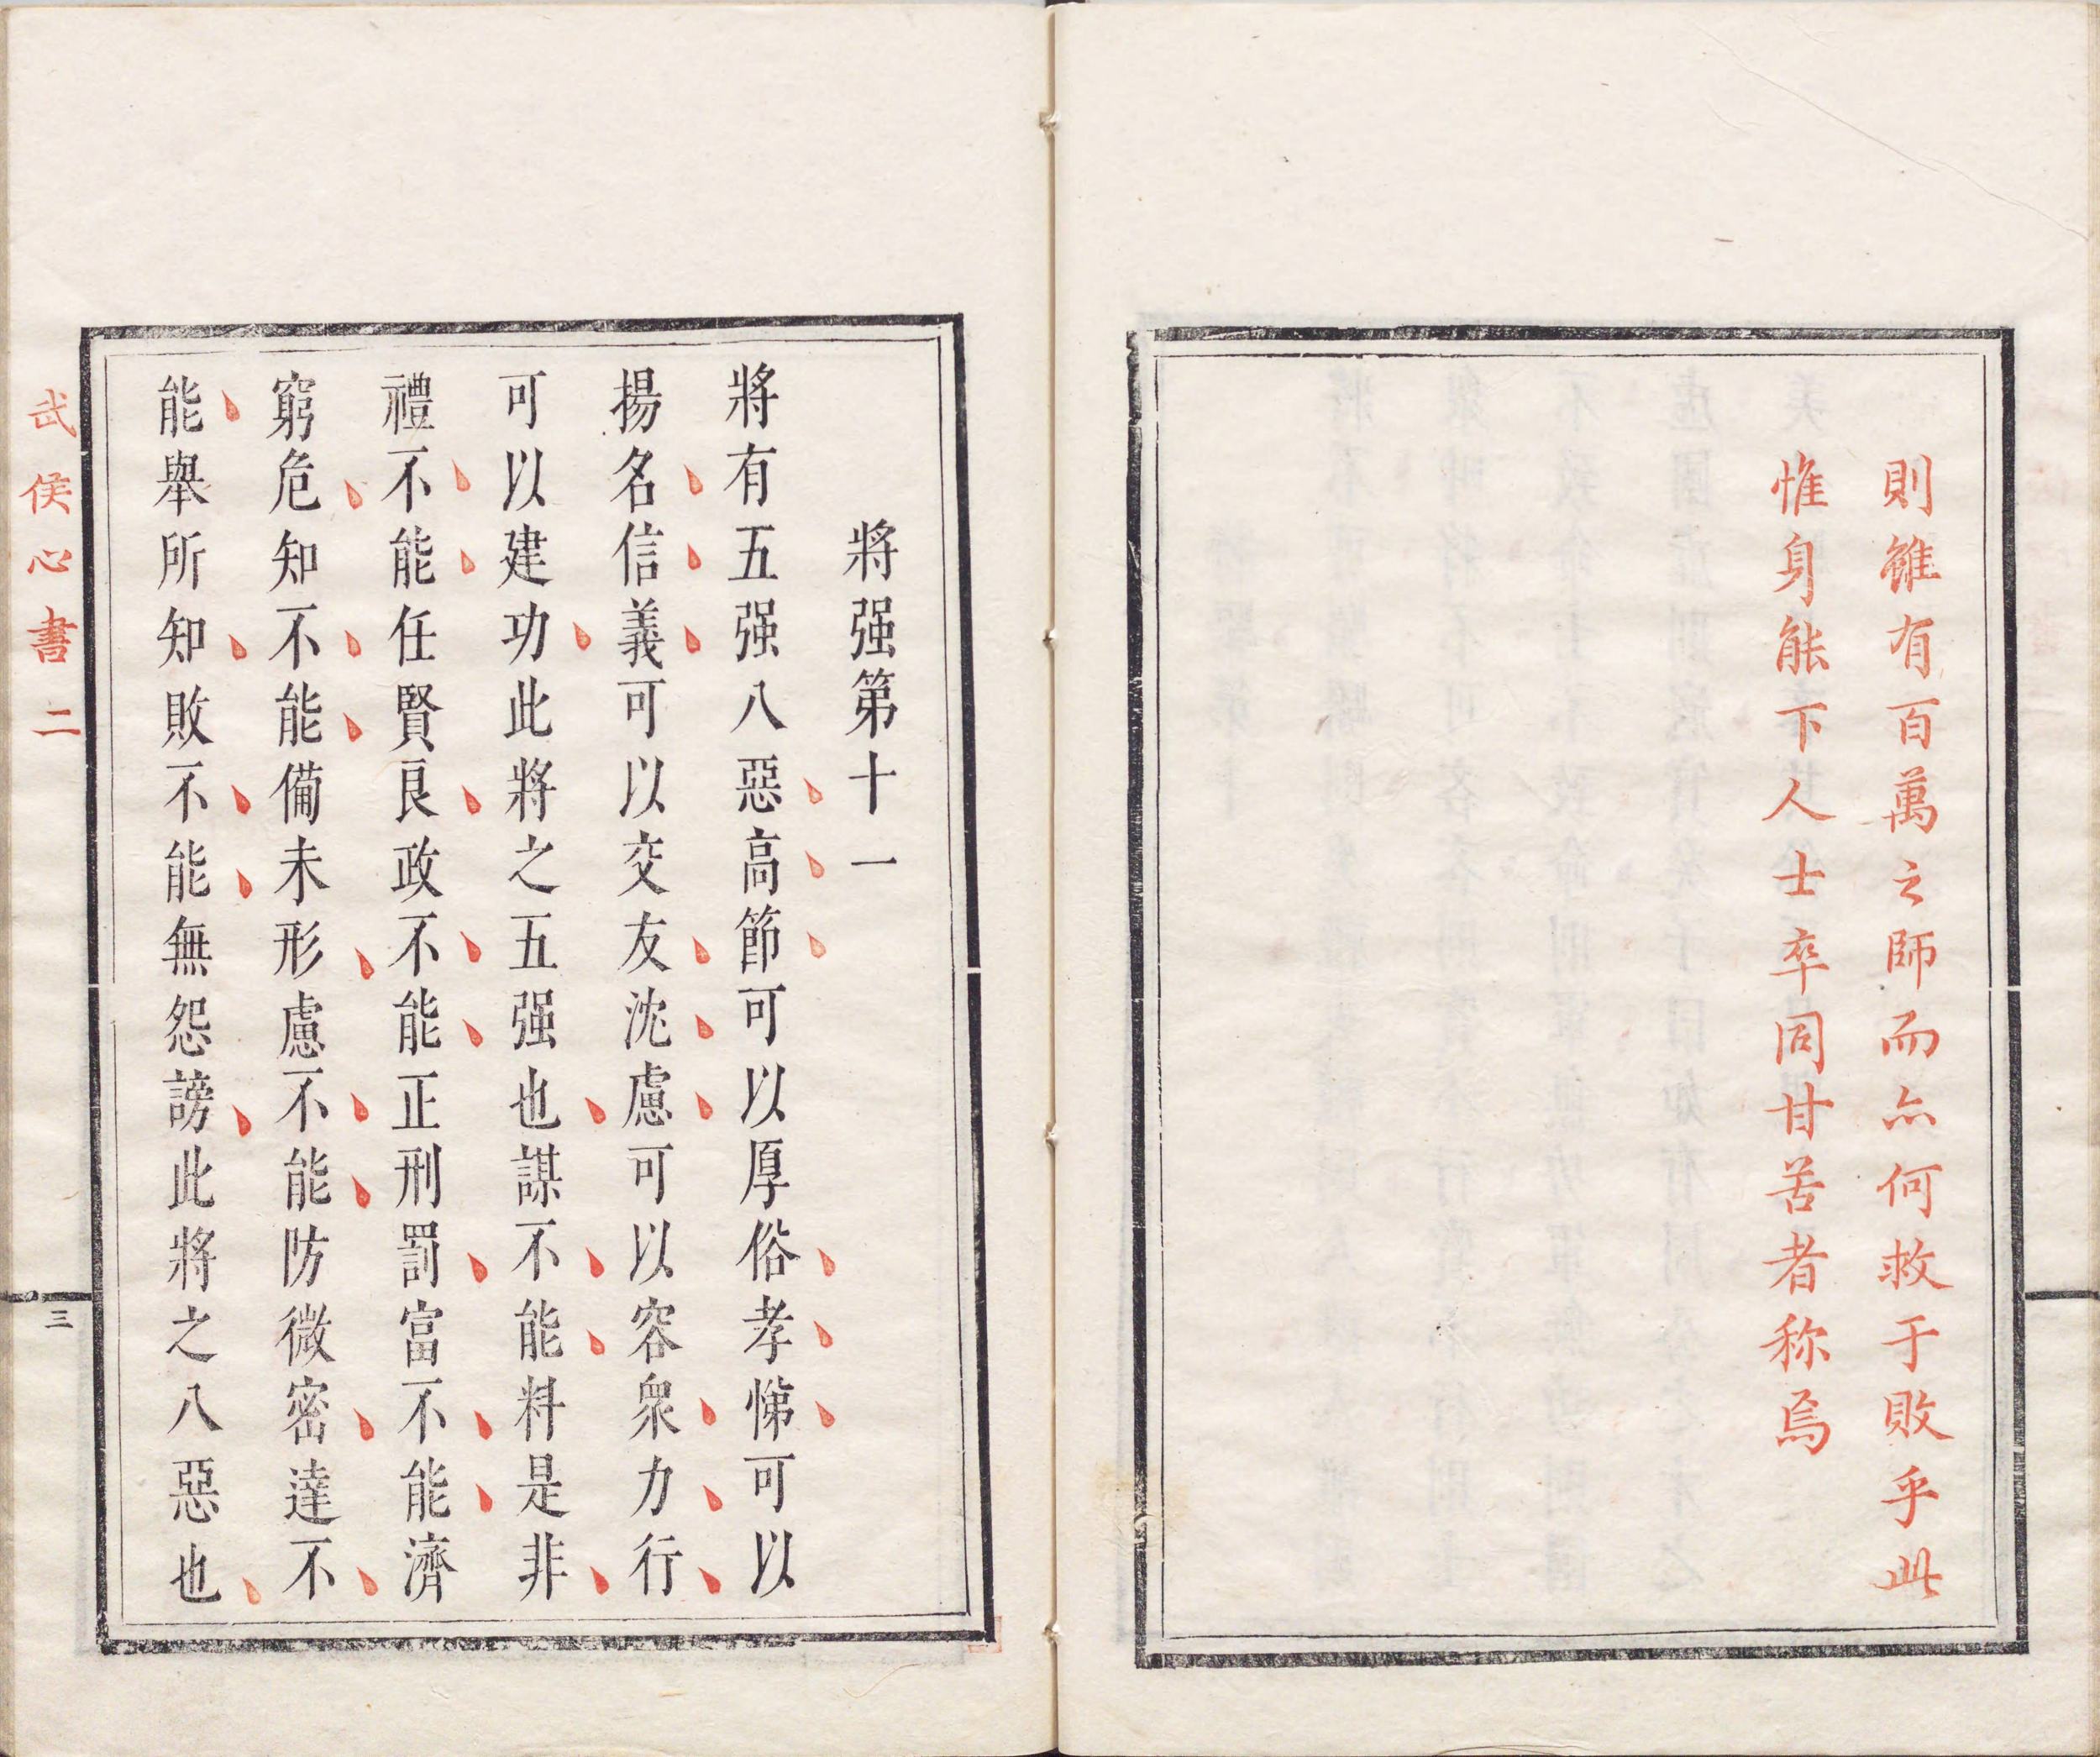 則雖有百萬之師而亦何救于敗乎此
惟身能下人士卒同甘苦者称焉
將强第十一
將有五强八惡高節可以厚俗孝悌可以
揚名信義可以交友沈慮可以容衆力行
可以建功此將之五强也謀不能料是非
禮不能任賢良政不能正刑罰富不能濟
窮危知不能備未形慮不能防微密達不
能舉所知敗不能無怨謗此將之八惡也
武侯心書二
三